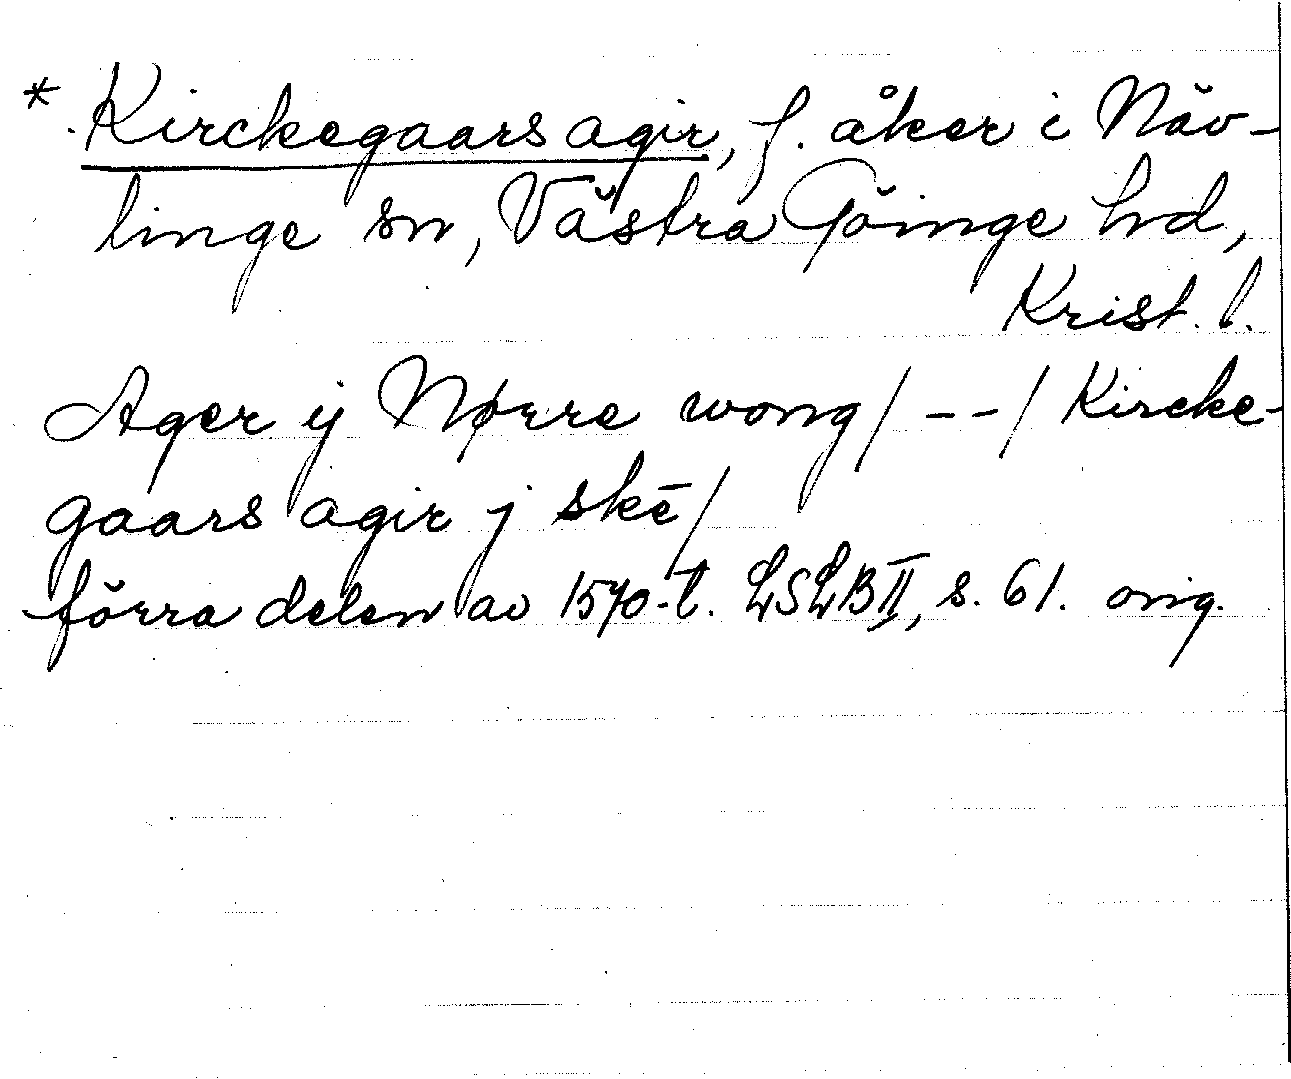 * Kirckegaars agir, f. åker i Näv-
linge sn, Västra Göinge hd,
Krist. l.
Ager ij Nørre wong/--/Kircke-
gaars agir j skē/
förra delen av 1570-t. LSLB II, s. 61. orig.